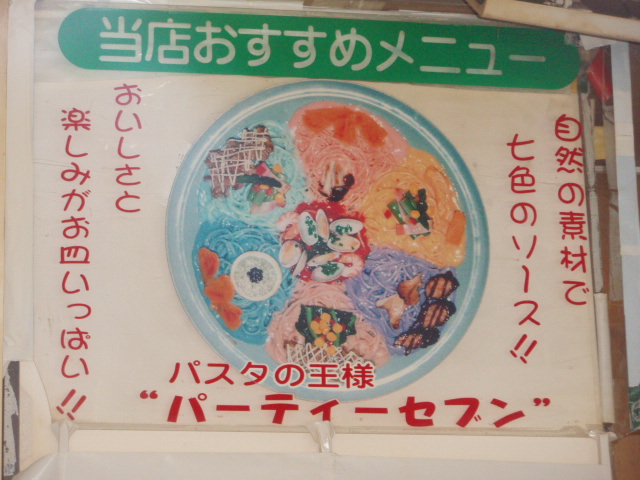 当店おすすめメニュー
自然の素材で
七色のソース!!
おいしさと
楽しみがお皿いっぱい!!
パスタの王様
“パーティーセブン”